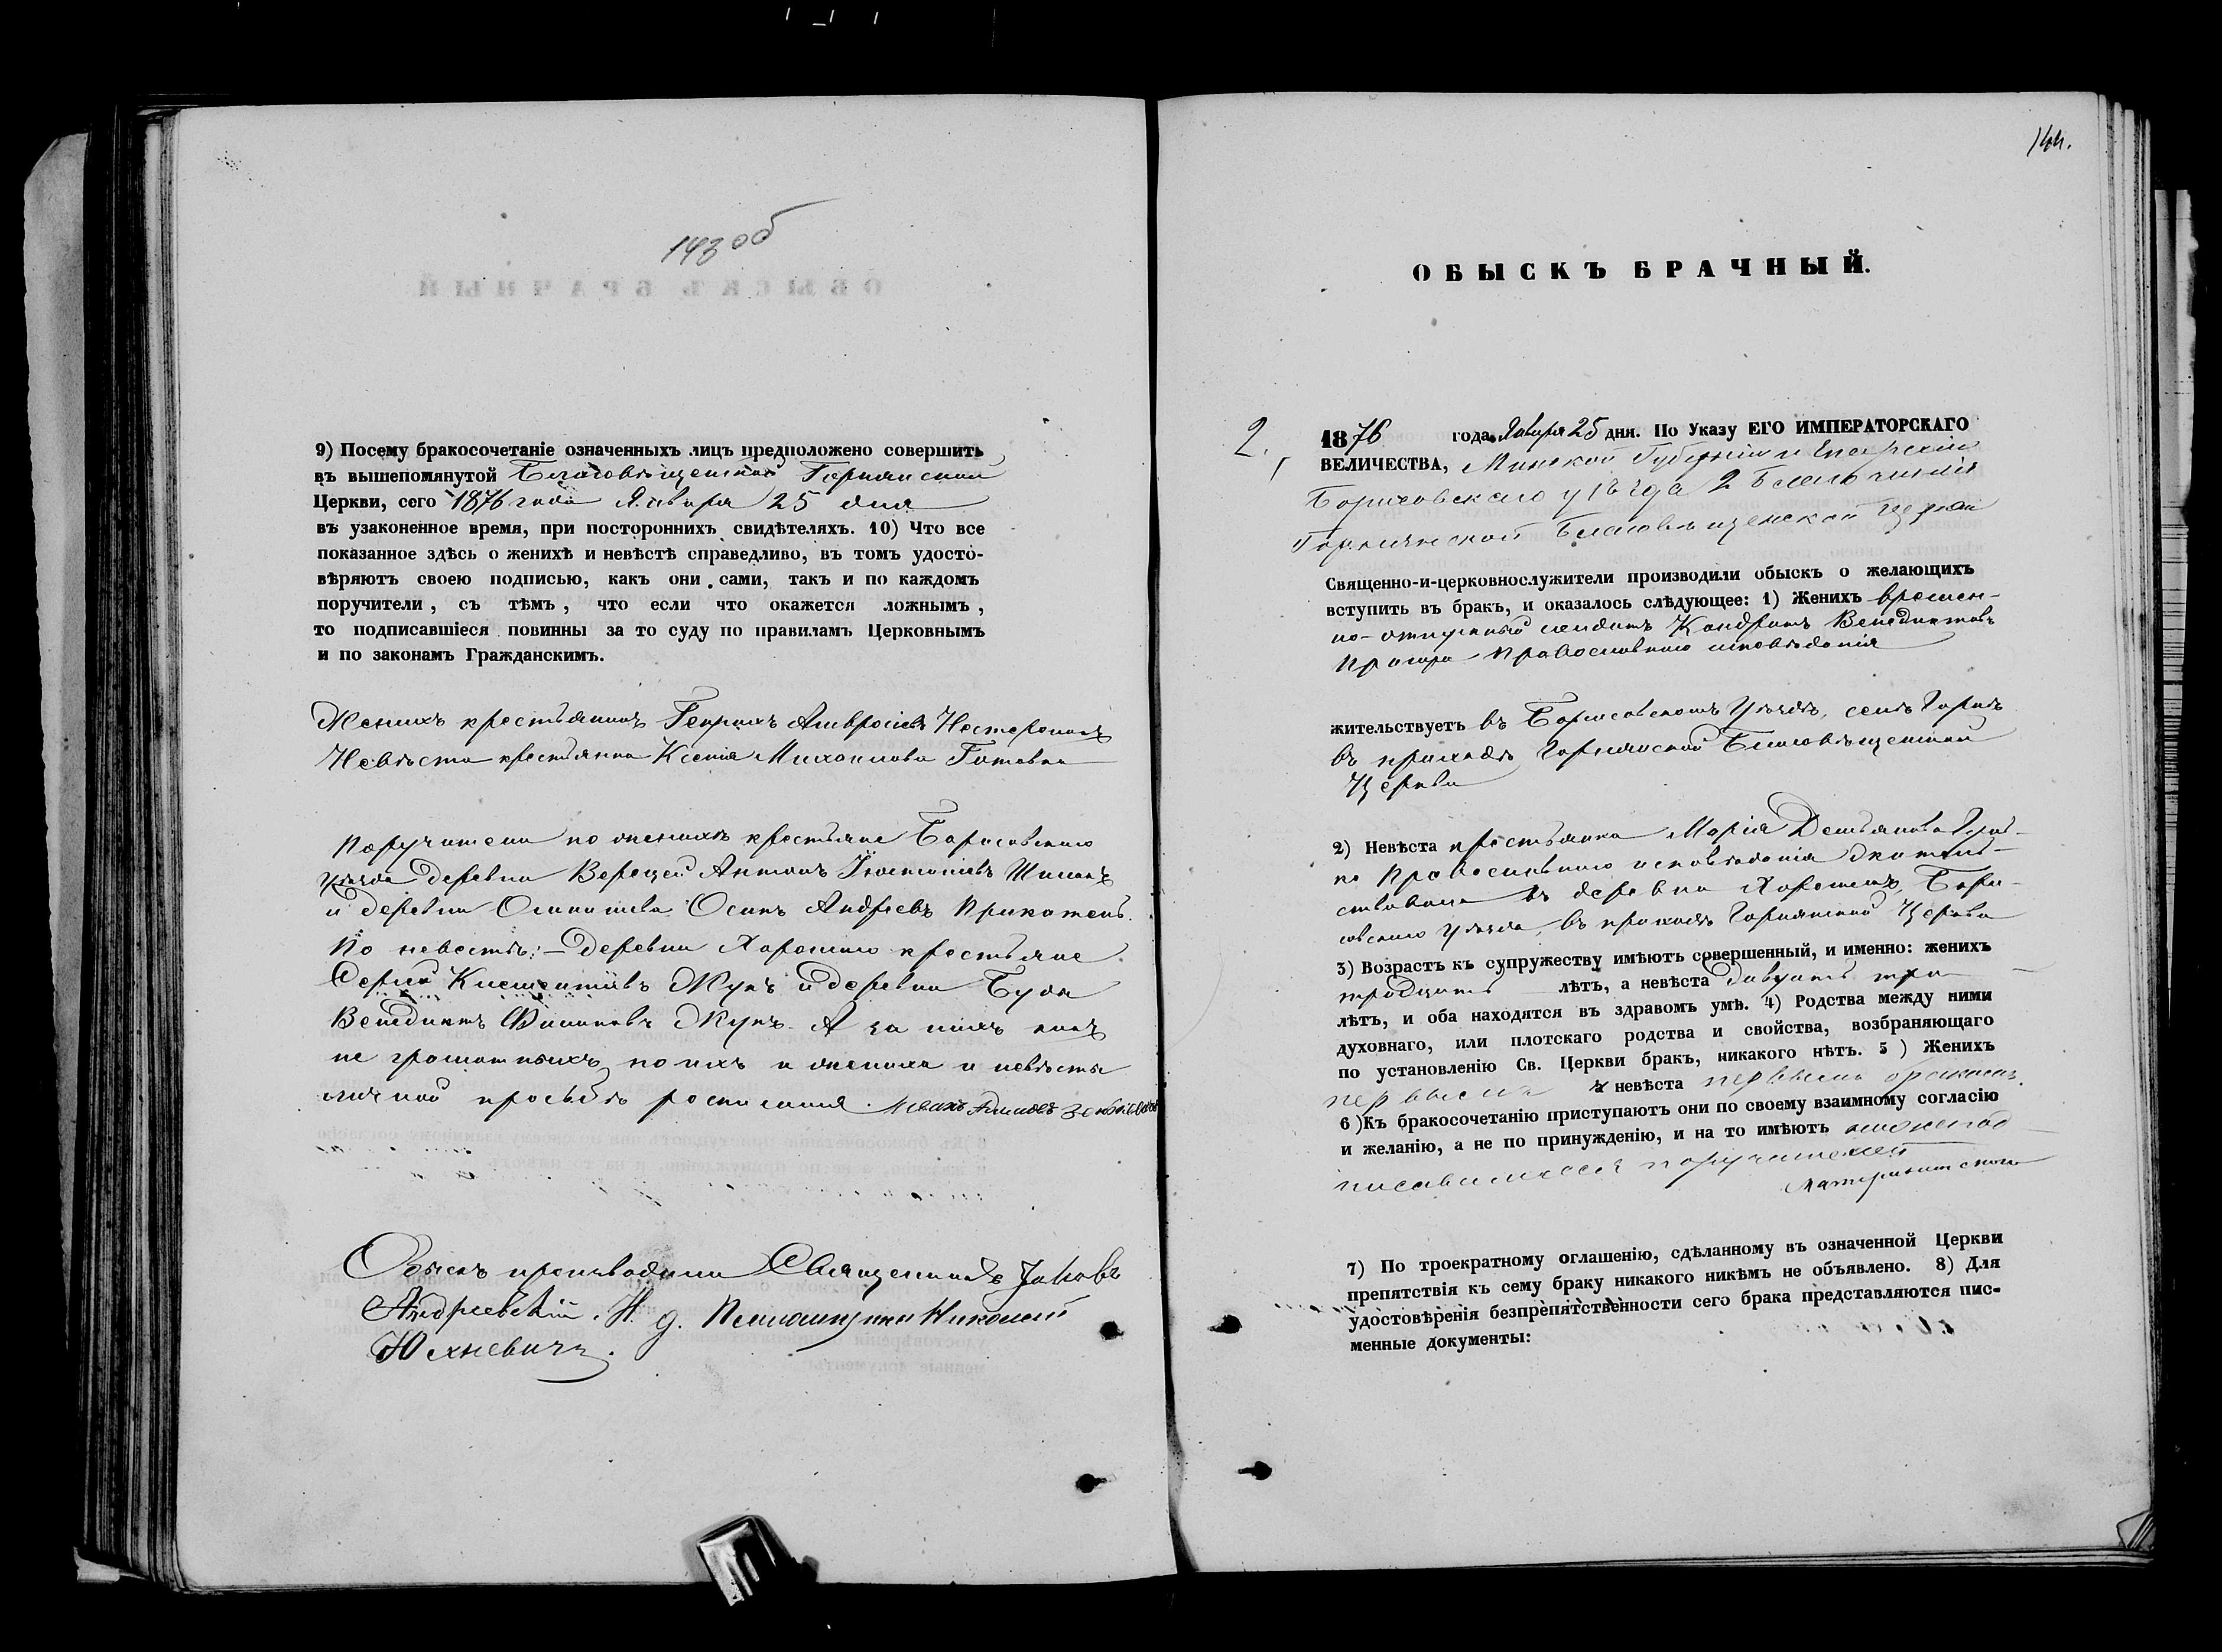 143 об
9) Посему бракосочетаніе означенныхъ лицъ предположено совершить
въ вышепомянутой Благовѣщенской Горнянской
Церкви, сего 1876 года Января 25 дня
въ узаконенное время, при постороннихъ свидѣтеляхъ. 10) Что все
показанное здѣсь о женихѣ и невѣстѣ справедливо, въ томъ удосто-
вѣряютъ своею подписью, какъ они сами, такъ и по каждомъ
поручители, съ тѣмъ, что если что окажется ложнымъ,
то подписавшіеся повинны за то суду по правиламъ Церковнымъ
и по законамъ Гражданскимъ.
Женихъ крестьянинъ Амвросіевъ
Невѣста крестьянка Ксенія Михаилова
Поручители по женихѣ крестьяне Борисовского
уѣзда деревни Верещей Антонъ
и деревни Осипъ Андреевъ
По невестѣ: – деревни Хорошаго крестьяне
Сергій Климентіевъ Жукъ и деревни Буда
Венедиктъ Филиповъ Жукъ. А за нихъ какъ
не грамотныхъ по ихъ и жениха и невѣсты
личной просьбѣ росписался
Обыскъ производили Священникъ Іаковъ
Андріевскій. И. д. Псаломщика Николай
Юхневичъ.
144.
ОБЫСКЪ БРАЧНЫЙ.
2. 1876 года Января 25 дня. По Указу ЕГО ИМПЕРАТОРСКАГО
ВЕЛИЧЕСТВА, Минской Губерніи и Епархіи
Борисовскаго уѣзда 2 Благочинія
Горнянской Благовѣщенской Церкви
Священно-и-церковнослужители производили обыскъ о желающихъ
вступить въ бракъ, и оказалось слѣдующее: 1) Женихъ времен-
но-отпускный солдатъ Кондратъ Венедиктовъ
Православного исповѣданія
жительствуетъ въ Борисовскомъ Уѣздѣ, селѣ Горкѣ
въ приходѣ Горнянской Благовѣщенской
Церкви
2) Невѣста крестьянка Марія Демьянова
Православного исповѣданія жител-
ствовала въ деревни Хорошемъ, Бори-
совского уѣзда, въ приходѣ Горнянской Церкви
3) Возрастъ къ супружеству имѣютъ совершенный, и именно: женихъ
тридцать лѣтъ, а невѣста двадцать три
лѣтъ, и оба находятся въ здравомъ умѣ. 4) Родства между ними
духовнаго, или плотскаго родства и свойства, возбраняющаго
по установленію Св. Церкви бракъ, никакого нѣтъ. 5) Женихъ
первымъ и невѣста первымъ бракомъ.
6) Къ бракосочетанію приступаютъ они по своему взаимному согласію
и желанію, а не по принужденію, и на то имѣютъ нижепод-
писавшихся поручителей
7) По троекратному оглашенію, сдѣланному въ означенной Церкви
препятствія къ сему браку никакого никѣмъ не объявлено. 8) Для
удостовѣренія безпрепятственности сего брака представляются пис-
менные документы: